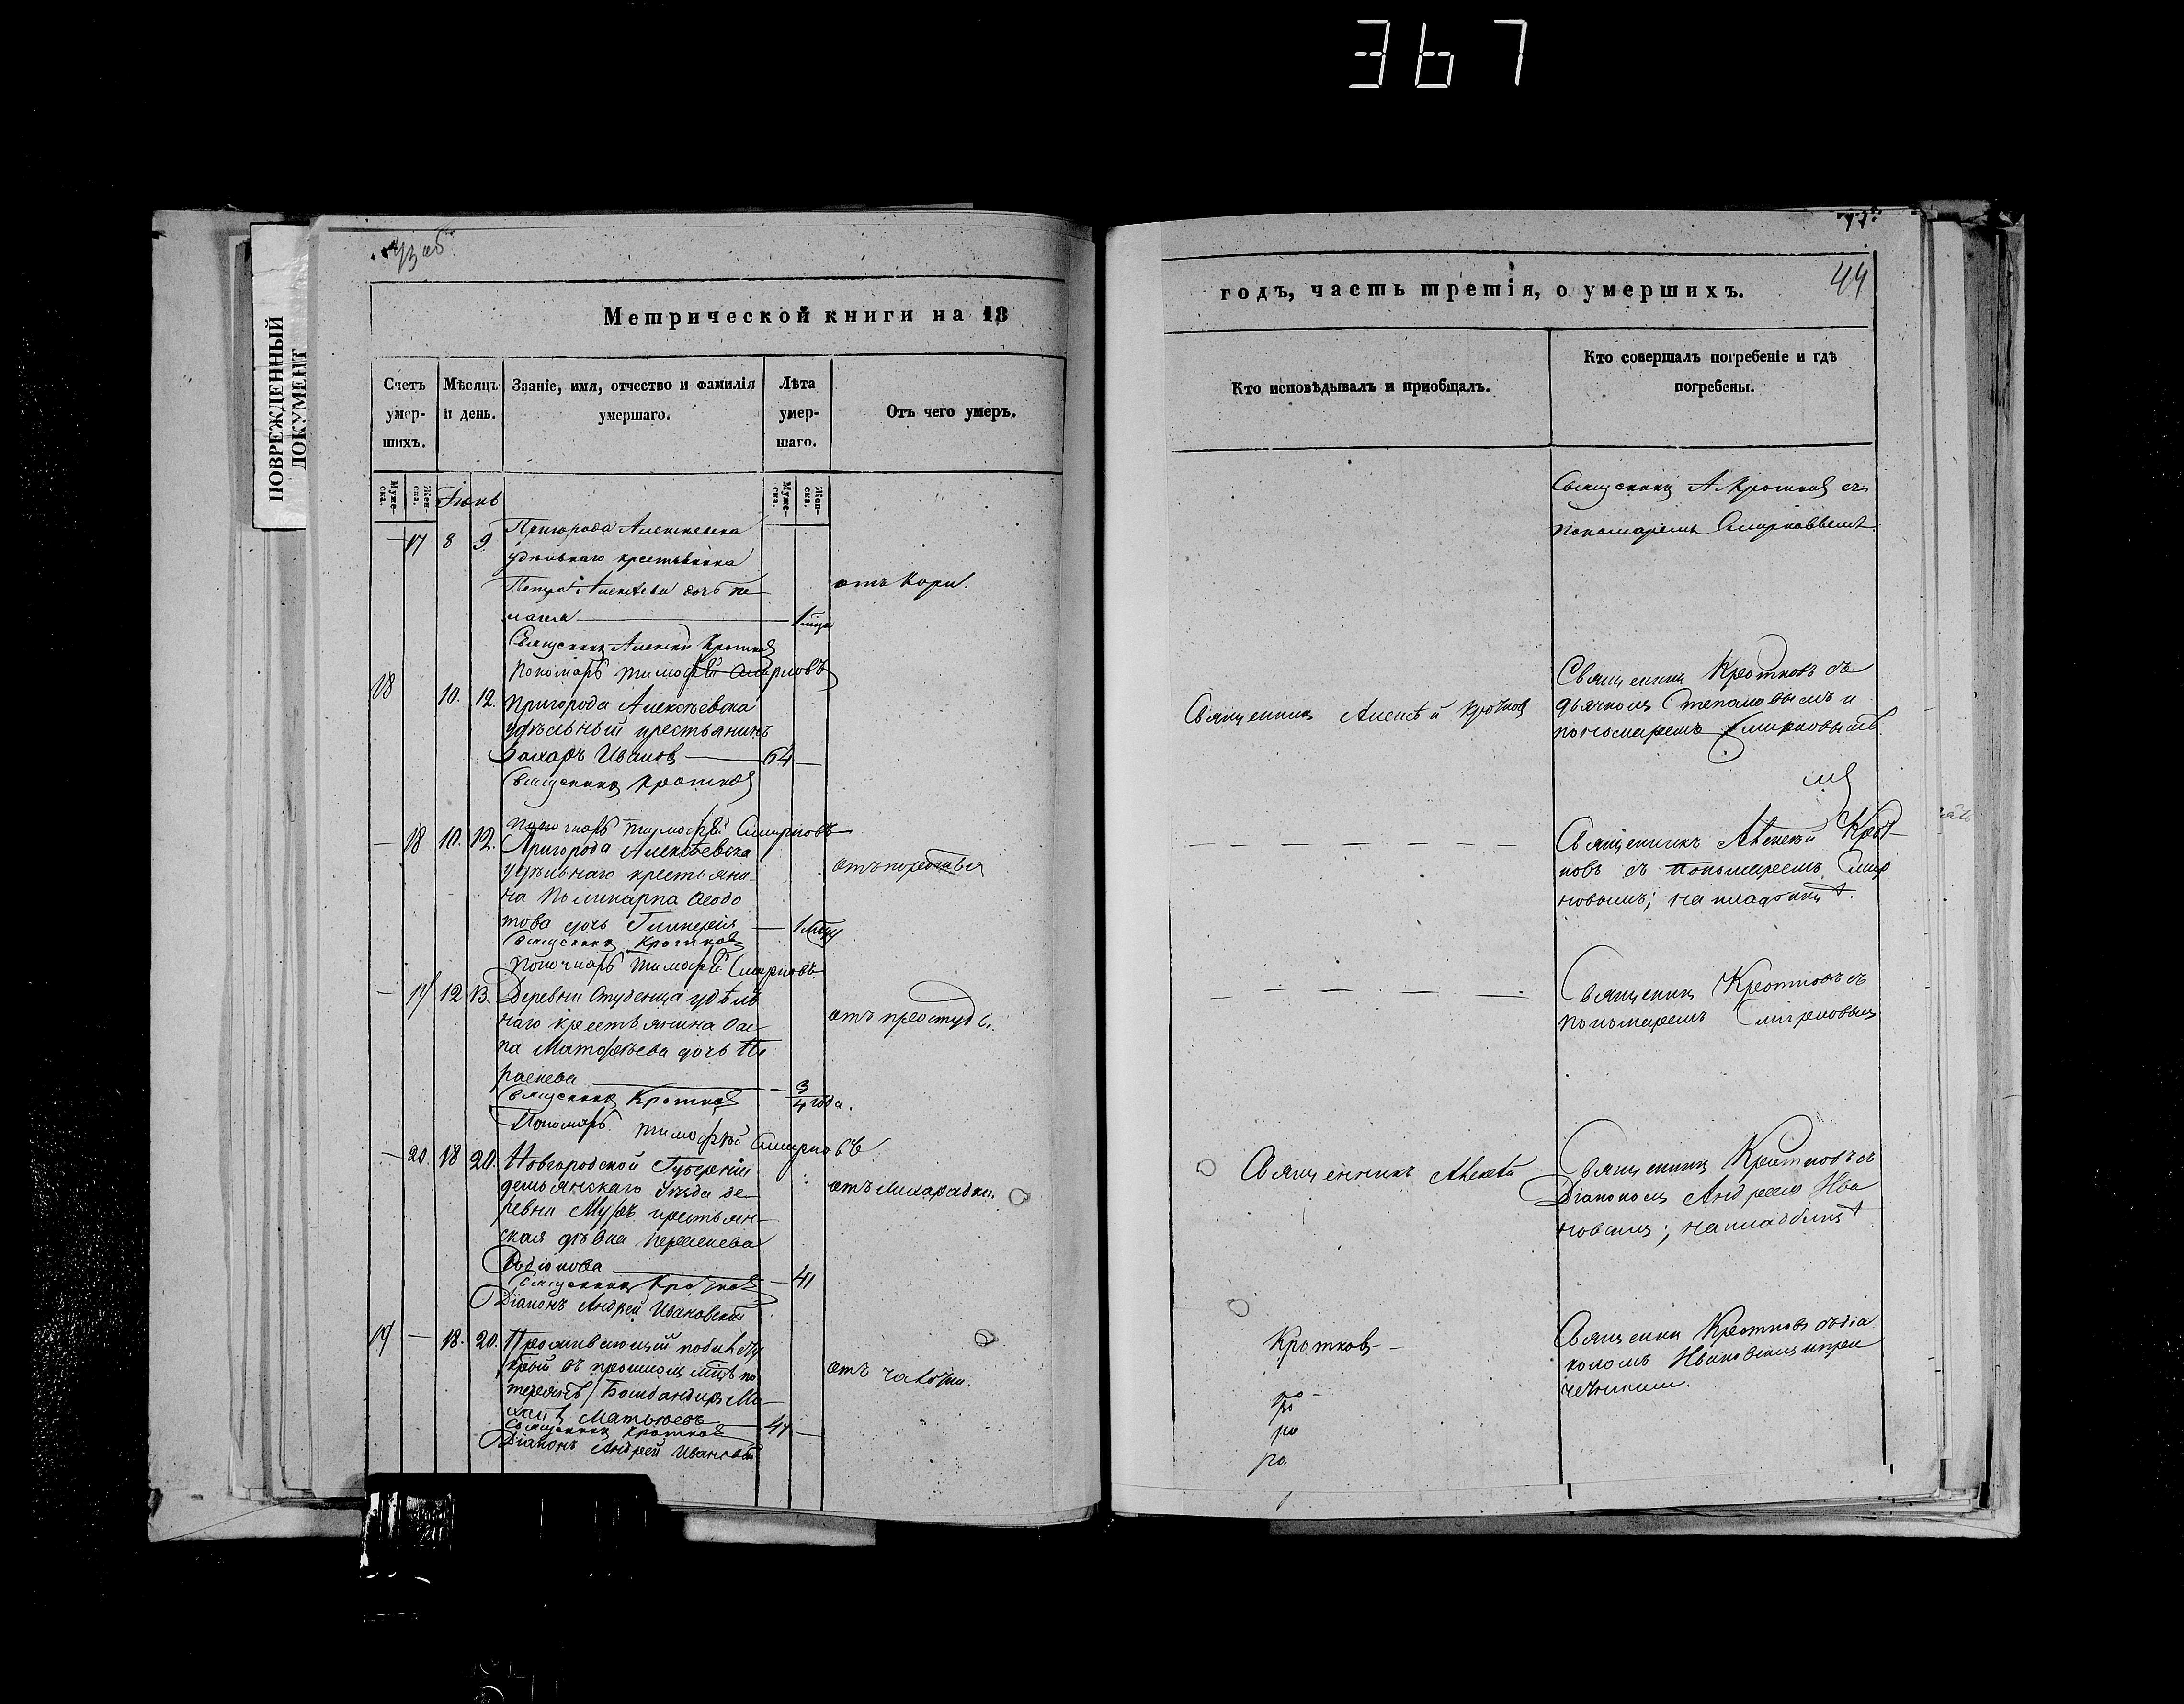 367
ПОВРЕЖДЕННЫЙ
ДОКУМЕНТ
Метрической книги на 18
Счетъ умер-шихъ.
Мѣсяцъ и день.
Званіе, имя, отчество и фамилія умершаго.
Лѣта умер-шаго.
Отъ чего умеръ.
Муже-ска.
Жен-ска.
Муже-ска.
Жен-ска.
Іюнь
17 8 9. Пригорода Алексѣевска
удѣльнаго крестьянина
Петра Алексѣева дочь Пе-
лагея 1 мца
отъ кори.
Священникъ Алексѣй Кротковъ
Пономарь Тимофѣй Смирновъ
18 10. 12. Пригорода Алексѣевска
удѣльный крестьянинъ
Захаръ Ивановъ 64
Священникъ Кротковъ
Пономарь Тимофѣй Смирновъ
18 10. 12. Пригорода Алексѣевска
удѣльнаго крестьяни-
на Поликарпа Ѳедо
това дочь Гликерія 1 мца
Священникъ Кротковъ
Пономарь Тимофѣй Смирновъ
19 12 13. Деревни Студенца удѣль
наго крестьянина
Матофѣева дочь Па
раскева 3/4 года.
отъ простуды.
Священникъ Кротковъ
Пономарь Тимофѣй Смирновъ
20 18 20. Новгородской Губерніи
Демьянскаго Уѣзда де-
ревни крестьян-
ская дѣвка Параскева
Родіонова 41
отъ лихорадки.
Священникъ Кротковъ
Діаконъ Андрей Ивановскій
19 18. 20. Проживающій
въ прошломъ мцѣ по
Бомбандиръ Ми-
Матвѣевъ 47
отъ чахотки.
Священникъ Кротковъ
Діаконъ Андрей Ивановскій
44
годъ, часть третія, о умершихъ.
Кто исповѣдывалъ и приобщалъ.
Кто совершалъ погребеніе и гдѣ погребены.
Священникъ А Кротковъ съ
пономаремъ Смирновымъ.
Священникъ Алексѣй Кротковъ
Священникъ Кротковъ съ
дьячкомъ Степановымъ и
пономаремъ Смирновымъ.
Священникъ Алексѣй Крот-
ковъ съ пономаремъ Смир
новымъ; на кладбищѣ.
Священникъ Кротковъ съ
пономаремъ Смирновымъ
Священникъ Алексѣй
Священникъ Кротковъ съ
Діакономъ Андреемъ Ива
новскимъ; на кладбищѣ
Кротковъ
Священникъ Кротковъ съ діа
кономъ Ивановскимъ и при
четниками.